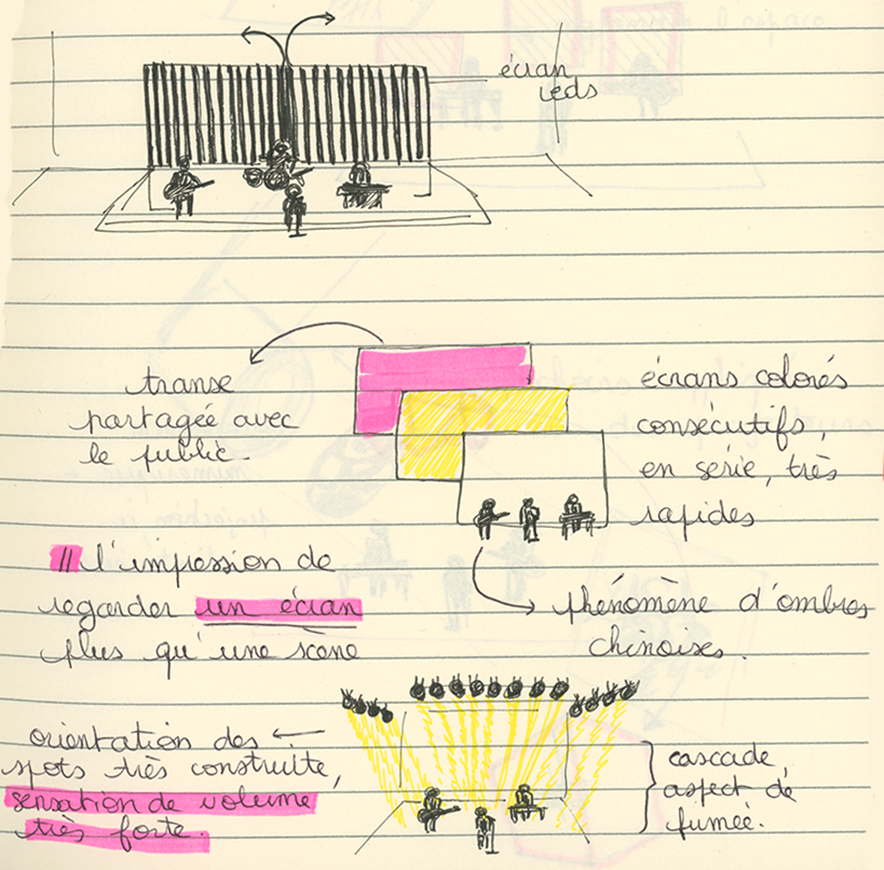 écran
leds
transe
partagée avec
le public.
écrans colorés
consécutifs,
en série, très
rapides
// l'impression de
regarder un écran
plus qu'une scène
phénomène d'ombres
chinoises.
orientation des
spots très construite,
sensation de volume
très forte.
cascade,
aspect de
fumée.